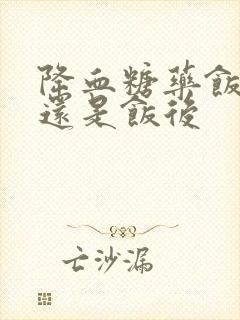 降血糖藥飯
還是飯後
亡沙漏